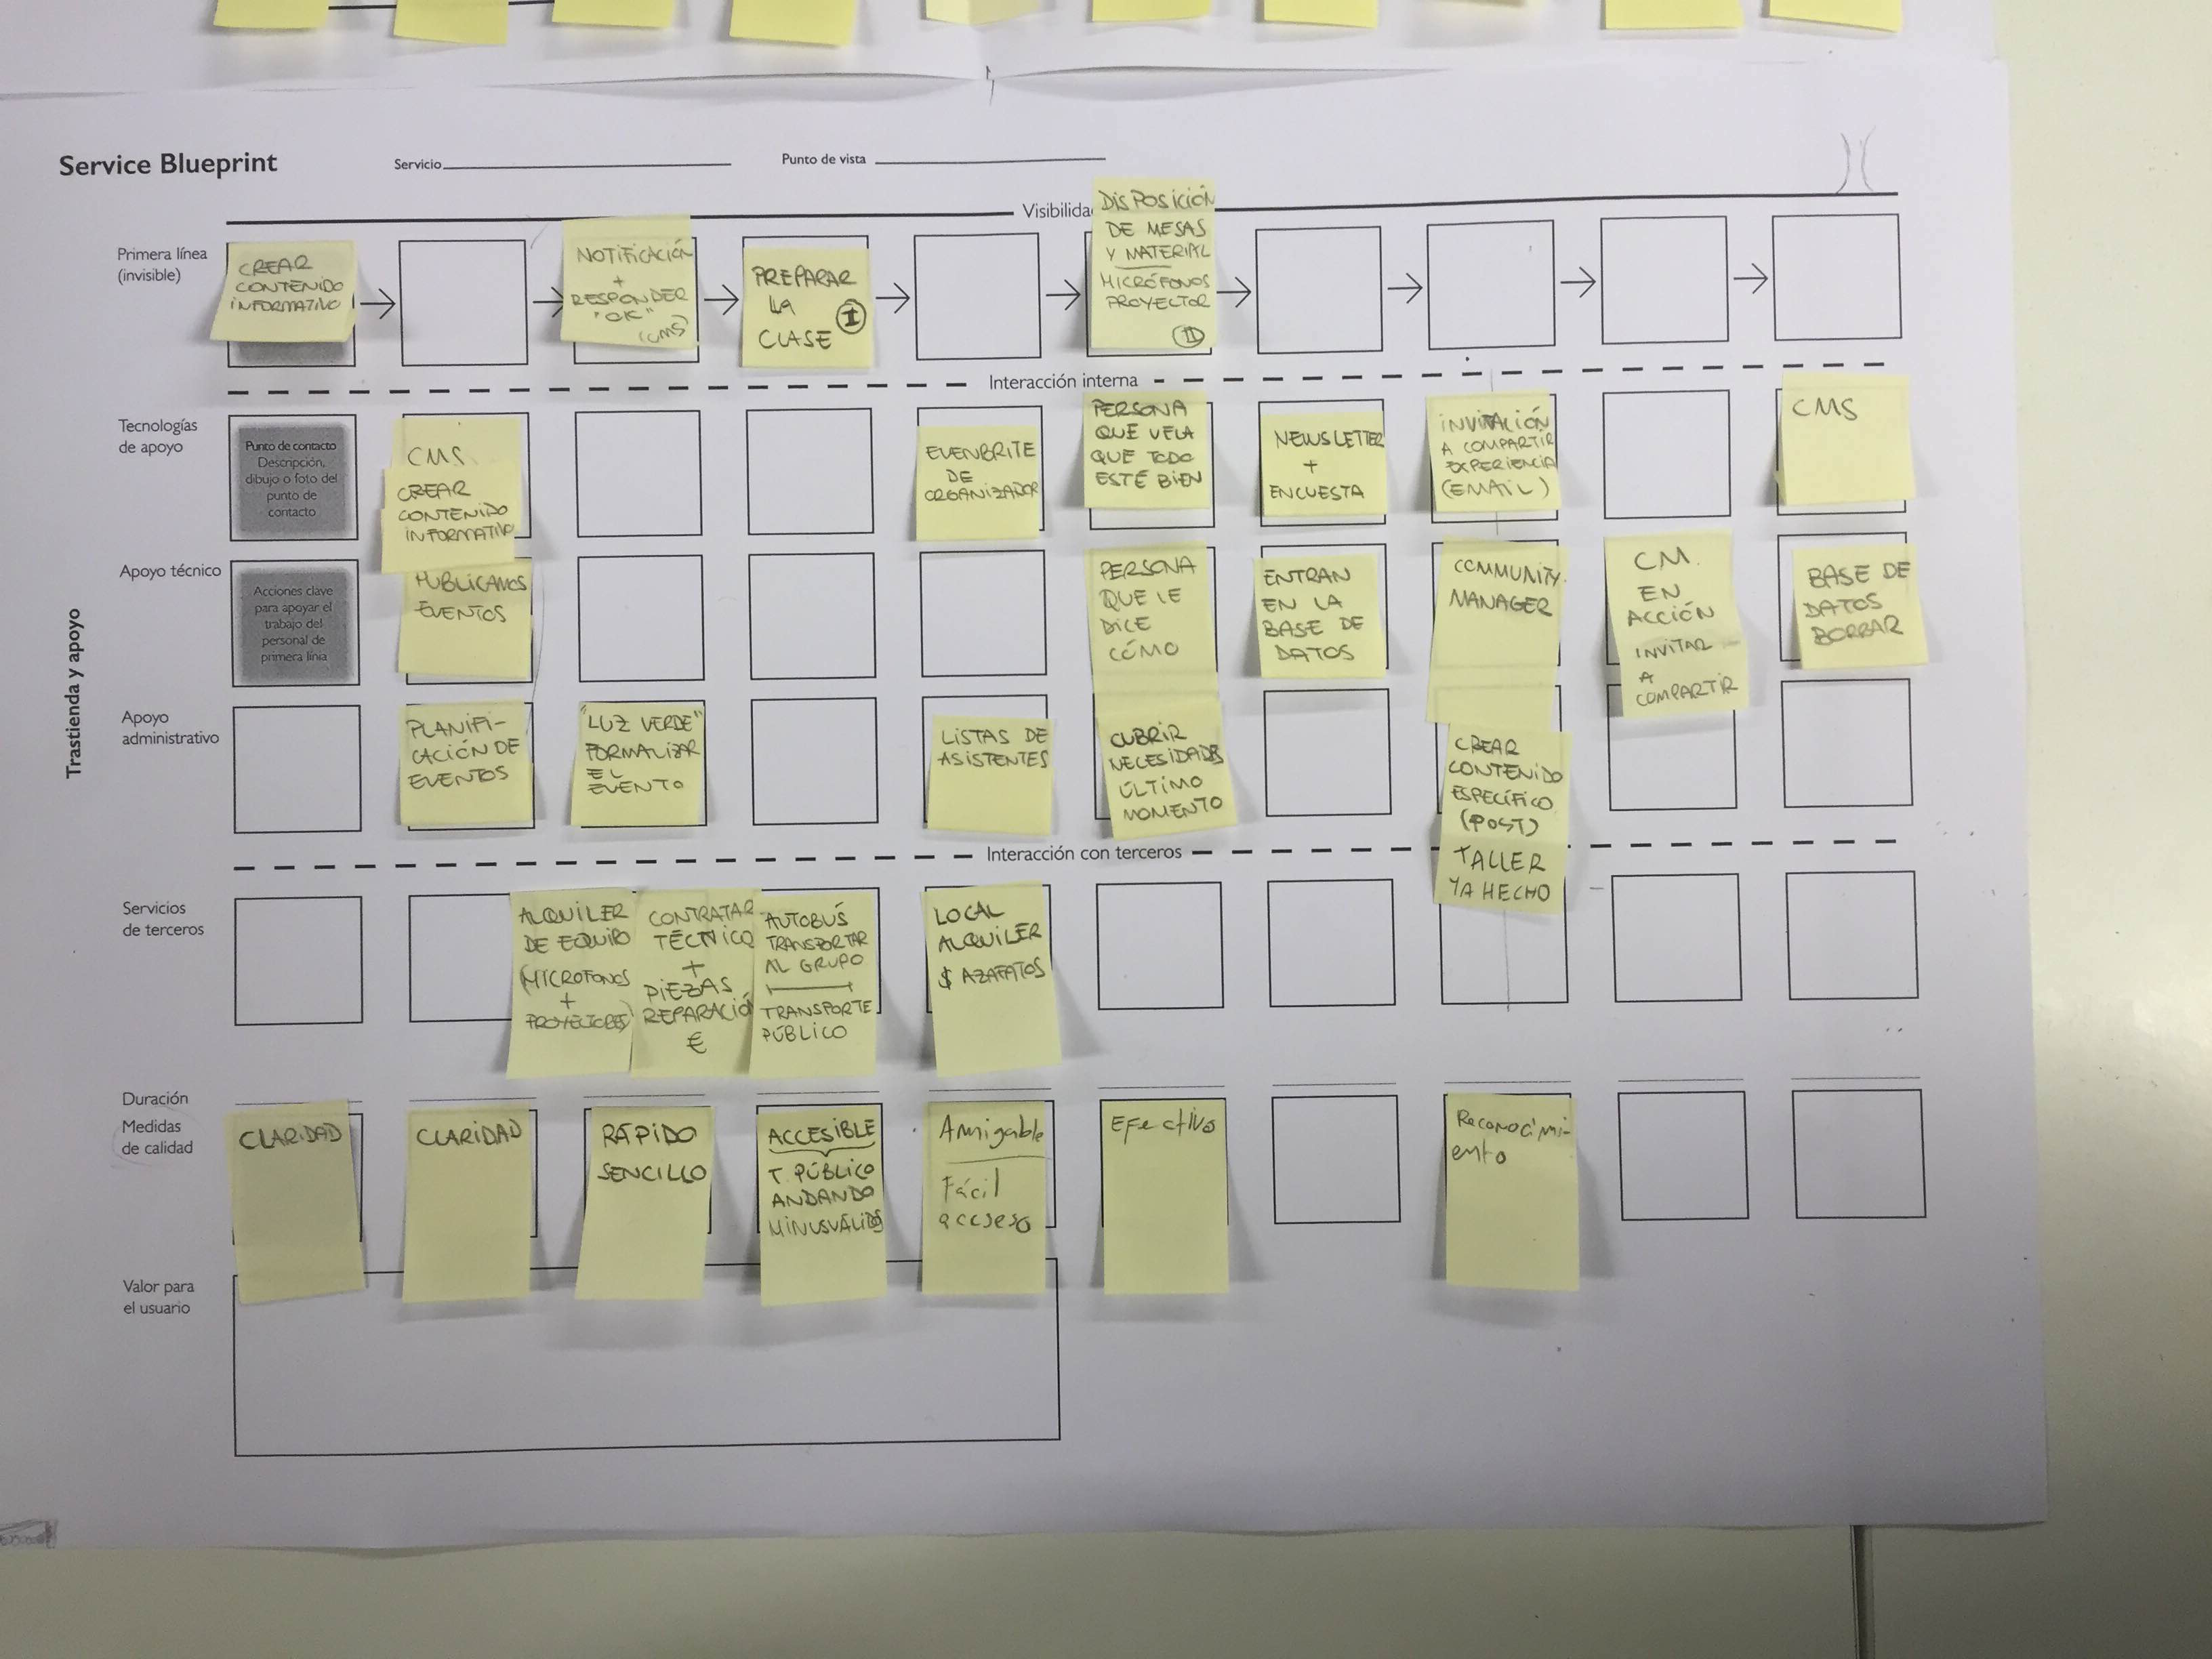 Service Blueprint
Servicio
Punto de vista
Visibilida
Primera línea
(invisible)
CREAR
CONTENIDO
INFORMATIVO
NOTIFICACIÓN
+
RESPONDER
"OK"
(CMS)
PREPARAR
LA
CLASE I
DISPOSICIÓN
DE MESAS
Y MATERIAL
MICRÓFONOS
PROYECTOR
II
Interacción interna
Trastienda y apoyo
Tecnologías
de apoyo
Punto de contacto
Descripción,
dibujo o foto del
punto de
contacto
CMS
CREAR
CONTENIDO
INFORMATIVO
EVENBRITE
DE
ORGANIZADOR
PERSONA
QUE VELA
QUE TODO
ESTÉ BIEN
NEWSLETTER
+
ENCUESTA
INVITACIÓN
A COMPARTIR
EXPERIENCIA
(EMAIL)
CMS
Apoyo técnico
Acciones clave
para apoyar el
trabajo del
personal de
primera línia
PUBLICAMOS
EVENTOS
PERSONA
QUE LE
DICE
CÓMO
ENTRAN
EN LA
BASE DE
DATOS
COMMUNITY
MANAGER
CM.
EN
ACCIÓN
INVITAR
A
COMPARTIR
BASE DE
DATOS
BORRAR
Apoyo
administrativo
PLANIFI-
CACIÓN DE
EVENTOS
"LUZ VERDE"
FORMALIZAR
EL
EVENTO
LISTAS DE
ASISTENTES
CUBRIR
NECESIDADES
ÚLTIMO
MOMENTO
CREAR
CONTENIDO
ESPECÍFICO
(POST)
TALLER
YA HECHO
Interacción con terceros
Servicios
de terceros
ALQUILER
DE EQUIPO
(MICROFONOS
+
PROYECTORES)
CONTRATAR
TÉCNICO
+
PIEZAS
REPARACIÓ
€
AUTOBÚS
TRANSPORTAR
AL GRUPO
TRANSPORTE
PÚBLICO
LOCAL
ALQUILER
$ AZAFATOS
Duración
Medidas
de calidad
CLARIDAD
CLARIDAD
RÁPIDO
SENCILLO
ACCESIBLE
T. PÚBLICO
ANDANDO
MINUSVÁLIDOS
Amigable
Fácil
accseso
Efectivo
Reconocimi-
ento
Valor para
el usuario